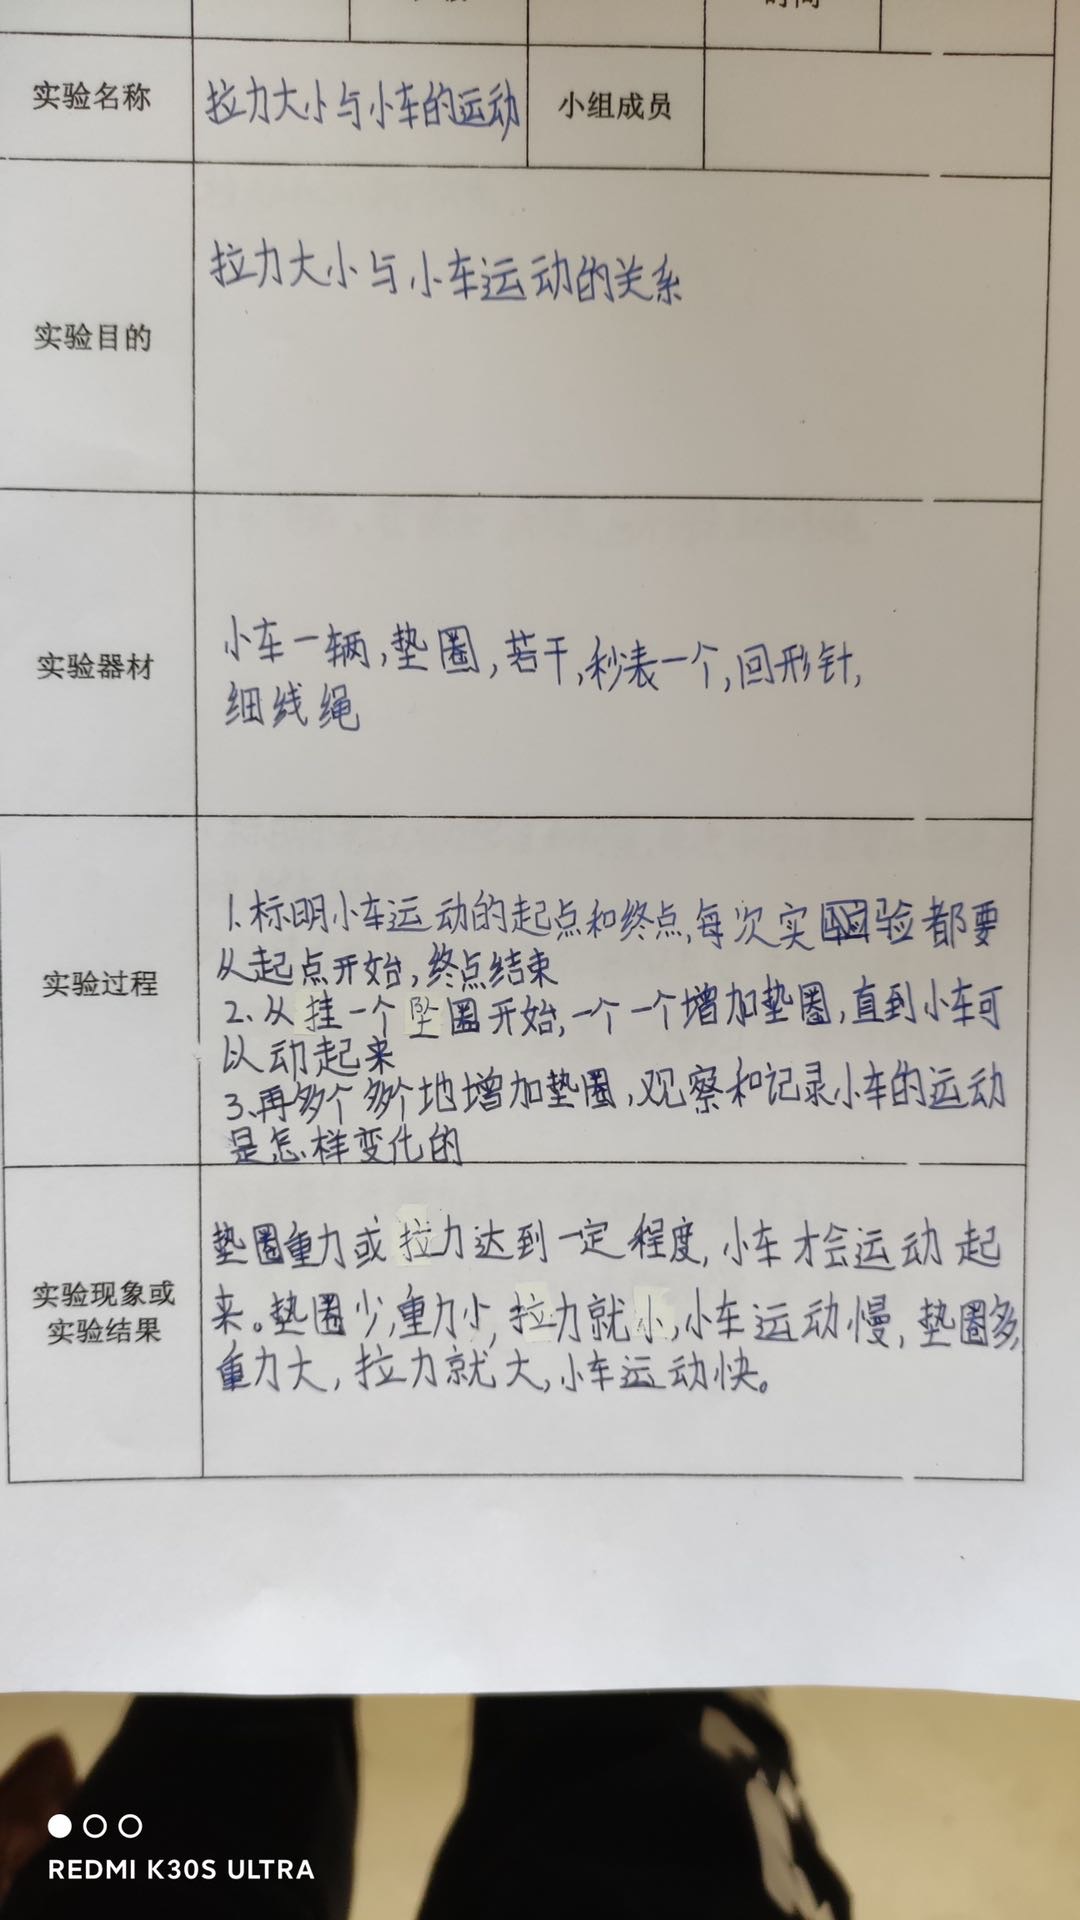 时间
实验名称
拉力大小与小车的运动
小组成员
实验目的
拉力大小与小车运动的关系
实验器材
小车一辆,垫圈,若干,秒表一个,回形针,
细线绳
实验过程
1.标明小车运动的起点和终点,每次实验都要
从起点开始,终点结束
2.从挂一个坠圈开始,一个一个增加垫圈,直到小车可
以动起来
3.再多个多个地增加垫圈,观察和记录小车的运动
是怎样变化的
实验现象或
实验结果
垫圈重力或拉力达到一定程度,小车才会运动起
来。垫圈少,重力小,拉力就小,小车运动慢,垫圈多,
重力大,拉力就大,小车运动快。
REDMI K30S ULTRA